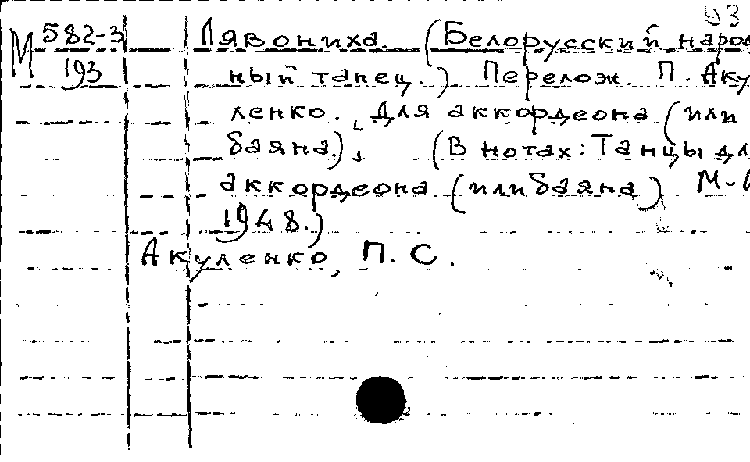 93
М 582-3 Лявониха. (Белорусский народ
193 ный танец.) Перелож. П. Аку
ленко. Для аккордеона (или
баяна). (В нотах: Танцы дл
аккордеона (или баяна) М-
1948.)
Акуленко, П. С.